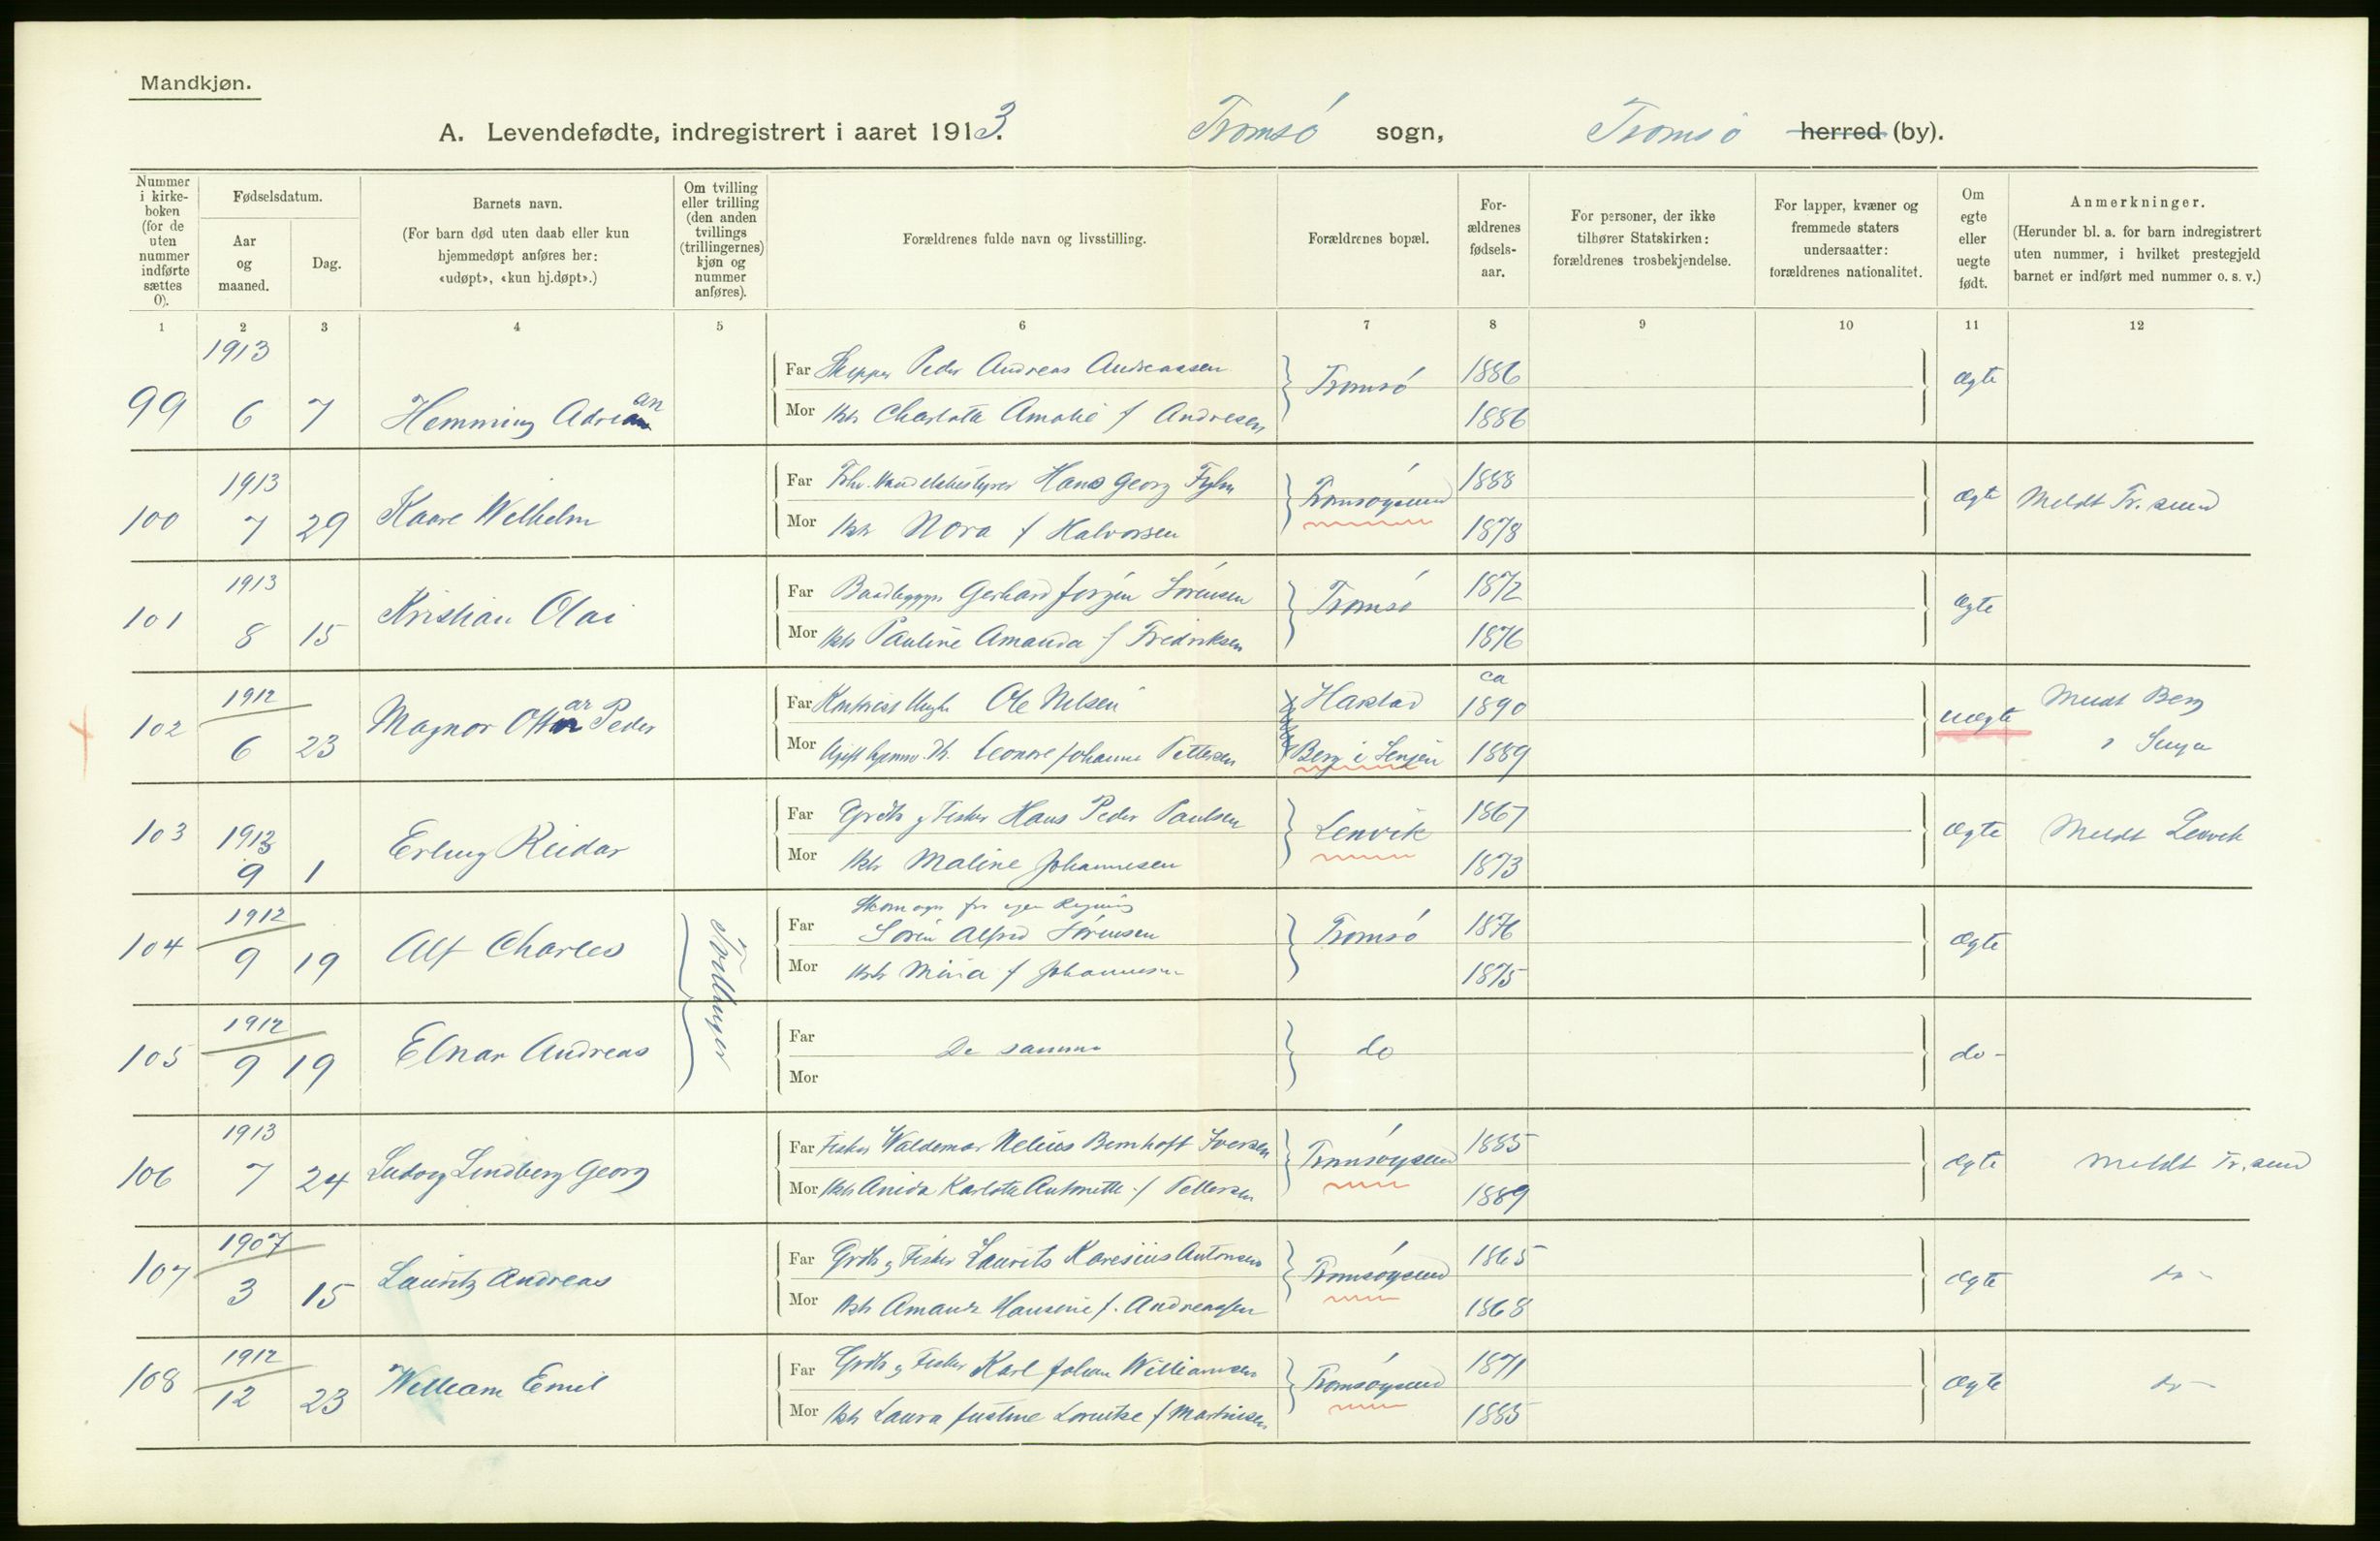 Mandkjøn.
A. Levendefødte, indregistrert i aaret 1913. Tromsø sogn, Tromsø herred (by).
Nummer i kirke-boken (for de uten nummer indførte sættes 0).
Fødselsdatum.
Aar og maaned.
Dag.
Barnets navn.
(For barn død uten daab eller kun hjemmedøpt anføres her: «udøpt», «kun hj.døpt».)
Om tvilling eller trilling (den anden tvillings (trillingernes) kjøn og nummer anføres).
Forældrenes fulde navn og livsstilling.
Forældrenes bopæl.
For-ældrenes fødsels-aar.
For personer, der ikke tilhører Statskirken: forældrenes trosbekjendelse.
For lapper, kvæner og fremmede staters undersaatter: forældrenes nationalitet.
Om egte eller uegte født.
Anmerkninger.
(Herunder bl. a. for barn indregistrert uten nummer, i hvilket prestegjeld barnet er indført med nummer o. s. v.)
1 2 3 4 5 6 7 8 9 10 11 12
1913
99 6 7 Hemming Adrian an
Far Skipper Peder Andreas Andreassen Tromsó 1886 ægte
Mor Charlotte Amalie f Andresen 1886
1913
100 7 29 Kaare Wilhelm
Far Hans Georg Tromsøysund 1888 ægte Meldt Tr. sund
Mor Nora f Halvorsen 1878
1913
101 8 15 Kristian Olai
Far Baadbygger Gerhard Jørgen Sørensen Tromsó 1872 ægte
Mor Pauline Amanda f Fredriksen 1876
1912
102 6 23 Magnor Ottar ar Peder
Far Ole Nilsen Harstad ca 1890 uægte Meldt Berg
Mor Leonore Johanne Pettersen Berg i Senjen 1889 i Senja
103 1913 9 1 Erling Reidar
Far Grdbr og Fisker Hans Peder Paulsen Lenvik 1867 ægte Meldt Lenvik
Mor Maline Johannesen 1873
1912
104 9 19 Alf Charles Tvillinger
Skomager for egen Regning
Far Sørin Alfred Sørensen Tromsó 1876 ægte
Mor Mina f Johannesen 1875
1912
105 9 19 Einar Andreas
Far De samme do do-
Mor
1913
106 7 24 Ludvig Lindberg Georg
Far Fisker Waldemar Nelius Bernhoft Iversen Tromsøysund 1885 ægte Meldt Tr. sund
Mor Karlotte Antonette f Pettersen 1889
1907
107 3 15 Lauritz Andreas
Far Grdbr og Fisker Laurits Karesius Antonsen Tromsøysund 1865 ægte do -
Mor Amanda Hansine f. Andreassen 1868
1912
108 12 23 William Emil
Far Grdbr og Fisker Karl Johan Williamsen Tromsøysund 1871 ægte do -
Mor Laura Justine Lorentse f Martinsen 1885